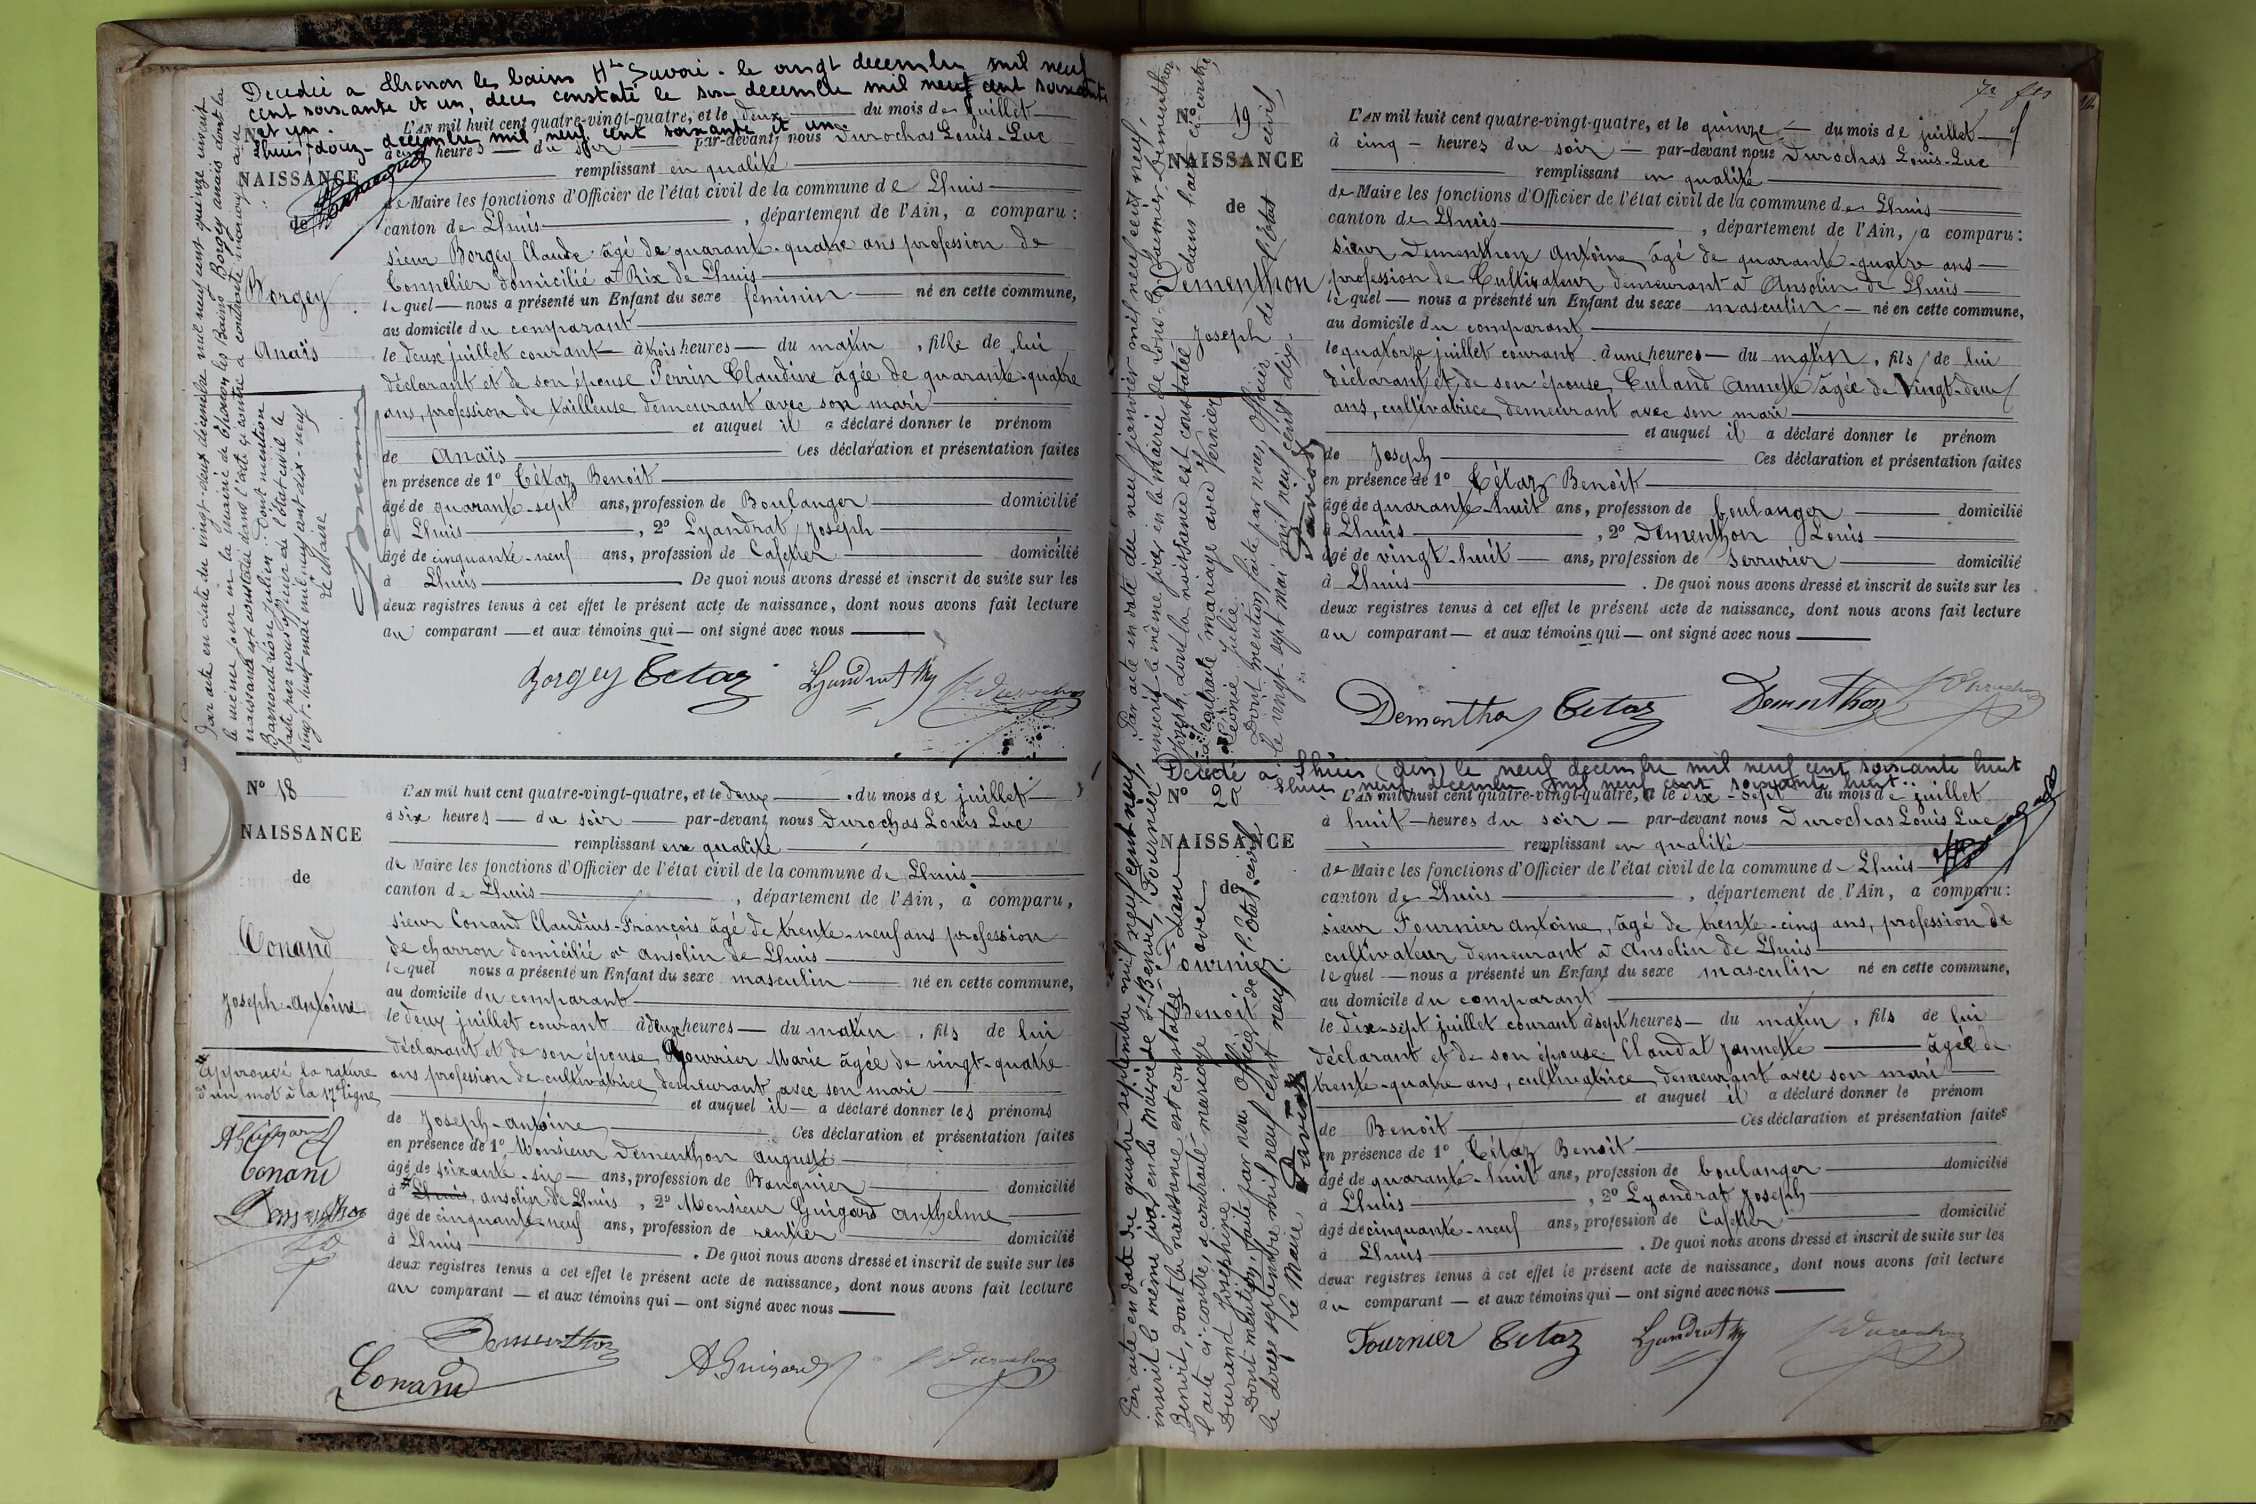 Decedié a Thonon les bains Hte Savoie - le vingt decembre mil neuf
cent soixante et un, deces constaté le six decembre mil neuf cent soixante
et un.
Lhuis, douze decembre mil neuf cent soixante et un
L'AN mil huit cent quatre-vingt-quatre, et le deux du mois de juillet
à cinq heures du soir par-devant nous Durochas Louis-Luc
NAISSANCE
remplissant en qualité
de
de Maire les fonctions d'Officier de l'état civil de la commune de Lhuis
canton de Lhuis, département de l'Ain, a comparu :
sieur Borgey Claude âgé de quarante-quatre ans profession de
Tonnelier domicilié à Rix de Lhuis
Borgey
lequel nous a présenté un Enfant du sexe féminin né en cette commune,
au domicile du comparant
Anaïs
le deux juillet courant à trois heures du matin, fille de lui
déclarant et de son épouse Perrin Claudine âgée de quarante-quatre
ans, profession de tailleuse demeurant avec son mari
et auquel il a déclaré donner le prénom
de Anaïs Ces déclaration et présentation faites
en présence de 1° Tétaz Benoît
âgé de quarante-sept ans, profession de Boulanger domicilié
à Lhuis, 2° Lyandrat Joseph
âgé de cinquante-neuf ans, profession de Cafetier domicilié
à Lhuis De quoi nous avons dressé et inscrit de suite sur les
deux registres tenus à cet effet le présent acte de naissance, dont nous avons fait lecture
au comparant et aux témoins qui ont signé avec nous
Borgey Tetaz Lyandrat Durochas
Par acte en date du vingt-deux décembre mil neuf cent quinze inscrit
le même jour en la mairie de Thonon les Bains Borgey Anaïs dont la
naissance est constatée dans l'acte ci-contre a contracté mariage avec
Julien. Dont mention
faite par nous officier de l'état civil le
vingt-neuf mai mil neuf cent dix-neuf
Le Maire
N° 18
L'AN mil huit cent quatre-vingt-quatre, et le deux du mois de juillet
à six heures du soir par-devant nous Durochas Louis Luc
NAISSANCE
remplissant en qualité
de
de Maire les fonctions d'Officier de l'état civil de la commune de Lhuis
canton de Lhuis, département de l'Ain, a comparu,
sieur Conand Claudius-François âgé de trente-neuf ans profession
Conand
de charron domicilié à Ansolin de Lhuis
lequel nous a présenté un Enfant du sexe masculin né en cette commune,
Joseph-Antoine
au domicile du comparant
le deux juillet courant à deux heures du matin, fils de lui
déclarant et de son épouse Gourrier Marie âgée de vingt-quatre
ans profession de cultivatrice demeurant avec son mari
Approuvé la rature
d'un mot à la 17e ligne
et auquel il a déclaré donner les prénoms
de Joseph-Antoine Ces déclaration et présentation faites
en présence de 1° Monsieur Dementhon Auguste
âgé de soixante-six ans, profession de Banquier domicilié
à Lhuis, Ansolin de Lhuis, 2° Monsieur Guigard Anthelme
âgé de cinquante-neuf ans, profession de rentier domicilié
à Lhuis. De quoi nous avons dressé et inscrit de suite sur les
deux registres tenus à cet effet le présent acte de naissance, dont nous avons fait lecture
au comparant et aux témoins qui ont signé avec nous
A Guigard
Conand
Dementhon
Dementhon
Conand A. Guigard Durochas
N° 19
L'AN mil huit cent quatre-vingt-quatre, et le quinze du mois de juillet
à cinq heures du soir par-devant nous Durochas Louis-Luc
NAISSANCE
remplissant en qualité
de
de Maire les fonctions d'Officier de l'état civil de la commune de Lhuis
canton de Lhuis, département de l'Ain, a comparu :
sieur Dementhon Antoine, âgé de quarante-quatre ans
Dementhon
profession de Cultivateur demeurant à Ansolin de Lhuis
lequel nous a présenté un Enfant du sexe masculin né en cette commune,
Joseph
au domicile du comparant
le quatorze juillet courant à une heures du matin, fils de lui
déclarant et de son épouse, Culand Annette âgée de vingt-deux
ans, cultivatrice demeurant avec son mari
et auquel il a déclaré donner le prénom
de Joseph Ces déclaration et présentation faites
en présence de 1° Tétaz Benoît
âgé de quarante-huit ans, profession de boulanger domicilié
à Lhuis, 2° Dementhon Louis
âgé de vingt-huit ans, profession de Serrurier domicilié
à Lhuis. De quoi nous avons dressé et inscrit de suite sur les
deux registres tenus à cet effet le présent acte de naissance, dont nous avons fait lecture
au comparant et aux témoins qui ont signé avec nous
Dementhon Tetaz Dementhon Durochas
Par acte en date du neuf janvier mil neuf cent neuf,
inscrit le même jour en la mairie de Dementhon
Joseph, dont la naissance est constatée dans l'acte ci-contre,
a contracté mariage avec Vernier
Léonie Julie.
Dont mention faite par nous, officier de l'état civil,
le vingt-sept mai mil neuf cent dix.
Décédé à Lhuis (Ain) le neuf decembre mil neuf cent soixante huit
Lhuis neuf decembre mil neuf cent soixante huit
N° 20
L'AN mil huit cent quatre-vingt-quatre, et le dix-sept du mois de juillet
à huit heures du soir par-devant nous Durochas Louis Luc
NAISSANCE
remplissant en qualité
de
de Maire les fonctions d'Officier de l'état civil de la commune de Lhuis
canton de Lhuis, département de l'Ain, a comparu :
sieur Fournier Antoine, âgé de trente-cinq ans, profession de
cultivateur demeurant à Ansolin de Lhuis
Fournier
lequel nous a présenté un Enfant du sexe masculin né en cette commune,
Benoit
au domicile du comparant
le dix-sept juillet courant à sept heures du matin, fils de lui
déclarant et de son épouse Claudat Jannette âgée de
trente-quatre ans, cultivatrice, demeurant avec son mari
et auquel il a déclaré donner le prénom
de Benoit Ces déclaration et présentation faites
en présence de 1° Tétaz Benoît
âgé de quarante-huit ans, profession de boulanger domicilié
à Lhuis, 2° Lyandrat Joseph
âgé de cinquante-neuf ans, profession de Cafetier domicilié
à Lhuis. De quoi nous avons dressé et inscrit de suite sur les
deux registres tenus à cet effet le présent acte de naissance, dont nous avons fait lecture
au comparant et aux témoins qui ont signé avec nous
Fournier Tetaz Lyandrat Durochas
Par acte en date du quatre septembre mil neuf cent neuf,
inscrit le même jour en la mairie de St Benoit, Fournier
Benoit, dont la naissance est constatée dans
l'acte ci-contre, a contracté mariage avec
Durand Joséphine.
Dont mention faite par nous officier de l'état civil
le douze septembre mil neuf cent neuf.
Le Maire